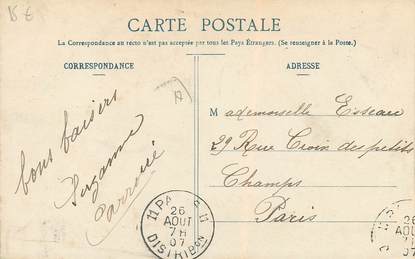 15 €
CARTE POSTALE
La Correspondance au recto n'est pas acceptée par tous les Pays Étrangers. (Se renseigner à la Poste.)
CORRESPONDANCE
ADRESSE
bons baisers
Suzanne
Mademoiselle
29 Rue Croix des petits
Champs
Paris
11 PARIS 11
26
AOUT
7H
07
DISTRIBON
26
AOU
7H
07